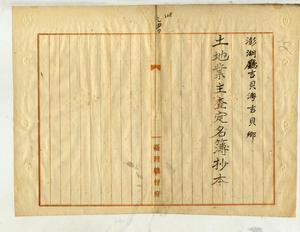 澎湖廳吉貝澳吉貝鄉
土地業主查定名簿抄本
臺灣總督府